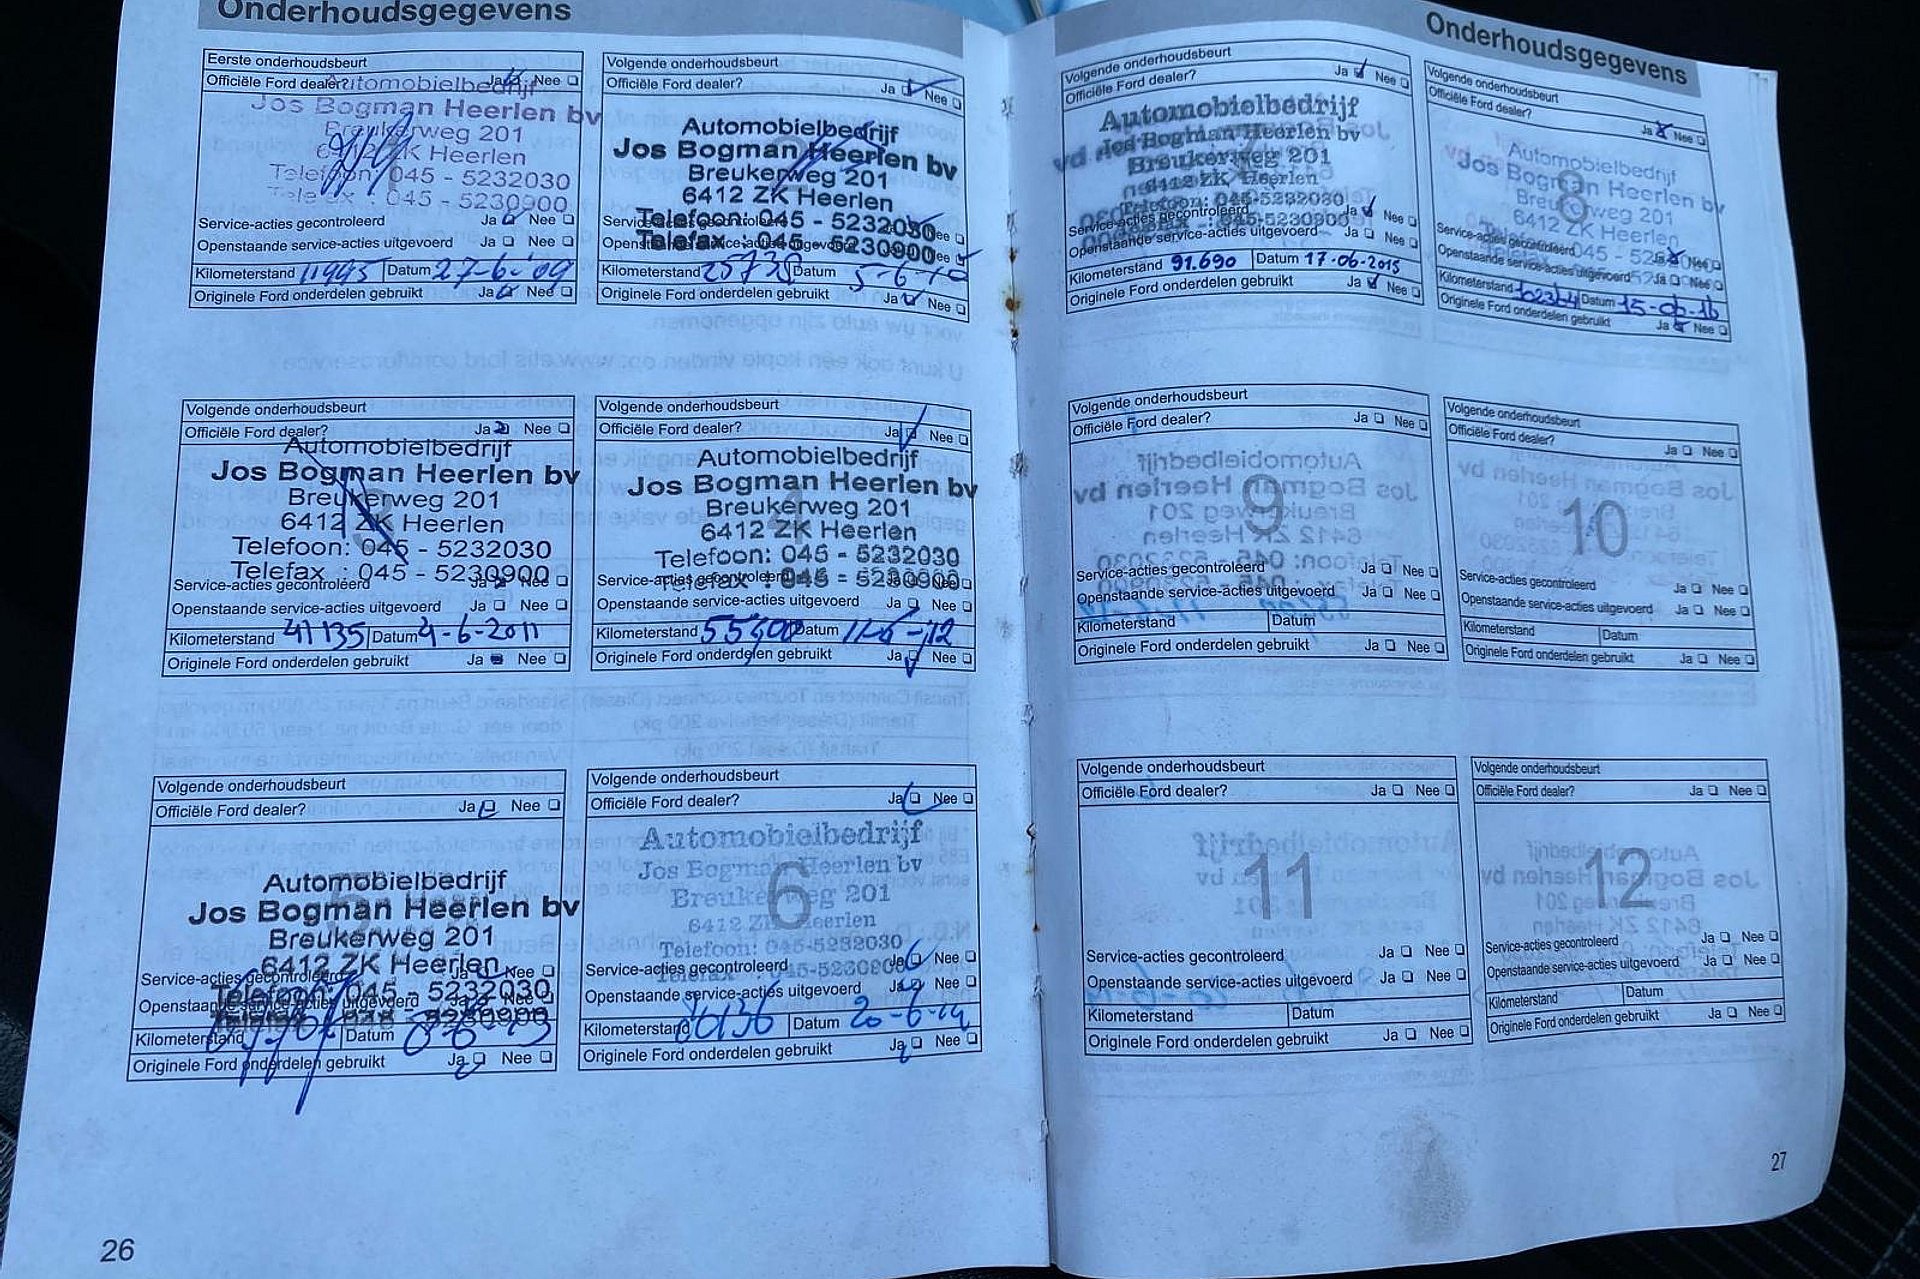 Onderhoudsgegevens
Eerste onderhoudsbeurt
Officiële Ford dealer? Ja Nee
Automobielbedrijf
Jos Bogman Heerlen bv
Breukerweg 201
6412 ZK Heerlen
Telefoon: 045 - 5232030
Telefax : 045 - 5230900
Service-acties gecontroleerd Ja Nee
Openstaande service-acties uitgevoerd Ja Nee
Kilometerstand 11995 Datum 27-6-'09
Originele Ford onderdelen gebruikt Ja Nee
Volgende onderhoudsbeurt
Officiële Ford dealer? Ja Nee
Automobielbedrijf
Jos Bogman Heerlen bv
Breukerweg 201
6412 ZK Heerlen
Telefoon: 045 - 5232030
Telefax : 045 - 5230900
Kilometerstand 25738 Datum 5-6-10
Originele Ford onderdelen gebruikt Ja Nee
Volgende onderhoudsbeurt
Officiële Ford dealer? Ja Nee
Automobielbedrijf
Jos Bogman Heerlen bv
Breukerweg 201
6412 ZK Heerlen
Telefoon: 045 - 5232030
Telefax : 045 - 5230900
Service-acties gecontroleerd Ja Nee
Openstaande service-acties uitgevoerd Ja Nee
Kilometerstand 41135 Datum 4-6-2011
Originele Ford onderdelen gebruikt Ja Nee
Volgende onderhoudsbeurt
Officiële Ford dealer? Ja Nee
Automobielbedrijf
Jos Bogman Heerlen bv
Breukerweg 201
6412 ZK Heerlen
Telefoon: 045 - 5232030
Telefax : 045 - 5230900
Service-acties gecontroleerd Ja Nee
Openstaande service-acties uitgevoerd Ja Nee
Kilometerstand Datum
Originele Ford onderdelen gebruikt Ja Nee
Volgende onderhoudsbeurt
Officiële Ford dealer? Ja Nee
Automobielbedrijf
Jos Bogman Heerlen bv
Breukerweg 201
6412 ZK Heerlen
Telefoon: 045 - 5232030
Service-acties gecontroleerd Ja Nee
Openstaande service-acties uitgevoerd Ja Nee
Kilometerstand Datum
Originele Ford onderdelen gebruikt Ja Nee
Volgende onderhoudsbeurt
Officiële Ford dealer? Ja Nee
6
Automobielbedrijf
Jos Bogman Heerlen bv
Breukerweg 201
6412 ZK Heerlen
Telefoon: 045-5232030
Service-acties gecontroleerd Ja Nee
Openstaande service-acties uitgevoerd Ja Nee
Kilometerstand 80136 Datum 20-6-14
Originele Ford onderdelen gebruikt Ja Nee
26
Onderhoudsgegevens
Volgende onderhoudsbeurt
Officiële Ford dealer? Ja Nee
Automobielbedrijf
Jos Bogman Heerlen bv
Breukerweg 201
6412 ZK Heerlen
Telefoon: 045-5232030
Service-acties gecontroleerd Ja Nee
Openstaande service-acties uitgevoerd Ja Nee
Kilometerstand 91.690 Datum 17-06-2015
Originele Ford onderdelen gebruikt Ja Nee
Volgende onderhoudsbeurt
Officiële Ford dealer? Ja Nee
8
Automobielbedrijf
Jos Bogman Heerlen bv
Breukerweg 201
6412 ZK Heerlen
Service-acties gecontroleerd
Openstaande service-acties uitgevoerd Ja Nee
Kilometerstand 102364 Datum 15-06-16
Originele Ford onderdelen gebruikt Ja Nee
Volgende onderhoudsbeurt
Officiële Ford dealer? Ja Nee
9
Service-acties gecontroleerd Ja Nee
Openstaande service-acties uitgevoerd Ja Nee
Kilometerstand Datum
Originele Ford onderdelen gebruikt Ja Nee
Volgende onderhoudsbeurt
Officiële Ford dealer? Ja Nee
10
Service-acties gecontroleerd Ja Nee
Openstaande service-acties uitgevoerd Ja Nee
Kilometerstand Datum
Originele Ford onderdelen gebruikt Ja Nee
Volgende onderhoudsbeurt
Officiële Ford dealer? Ja Nee
11
Service-acties gecontroleerd Ja Nee
Openstaande service-acties uitgevoerd Ja Nee
Kilometerstand Datum
Originele Ford onderdelen gebruikt Ja Nee
Volgende onderhoudsbeurt
Officiële Ford dealer? Ja Nee
12
Service-acties gecontroleerd Ja Nee
Openstaande service-acties uitgevoerd Ja Nee
Kilometerstand Datum
Originele Ford onderdelen gebruikt Ja Nee
27